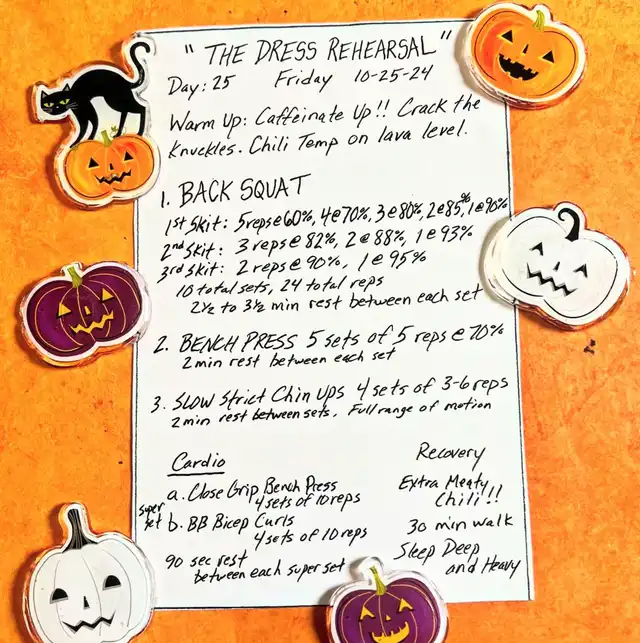 "THE DRESS REHEARSAL"
Day: 25 Friday 10-25-24
Warm Up: Caffeinate Up!! Crack the
Knuckles. Chili Temp on lava level.
1. BACK SQUAT
1st Skit: 5 reps @ 60%, 4 @ 70%, 3 @ 80%, 2 @ 85%, 1 @ 90%
2nd Skit: 3 reps @ 82%, 2 @ 88%, 1 @ 93%
3rd Skit: 2 reps @ 90%, 1 @ 95%
10 total sets, 24 total reps
2½ to 3½ min rest between each set
2. BENCH PRESS 5 sets of 5 reps @ 70%
2 min rest between each set
3. SLOW Strict Chin Ups 4 sets of 3-6 reps
2 min rest between sets. Full range of motion
Cardio
super set
a. Close Grip Bench Press
4 sets of 10 reps
b. BB Bicep Curls
4 sets of 10 reps
90 sec rest
between each super set
Recovery
Extra Meaty
Chili!!
30 min walk
Sleep Deep
and Heavy